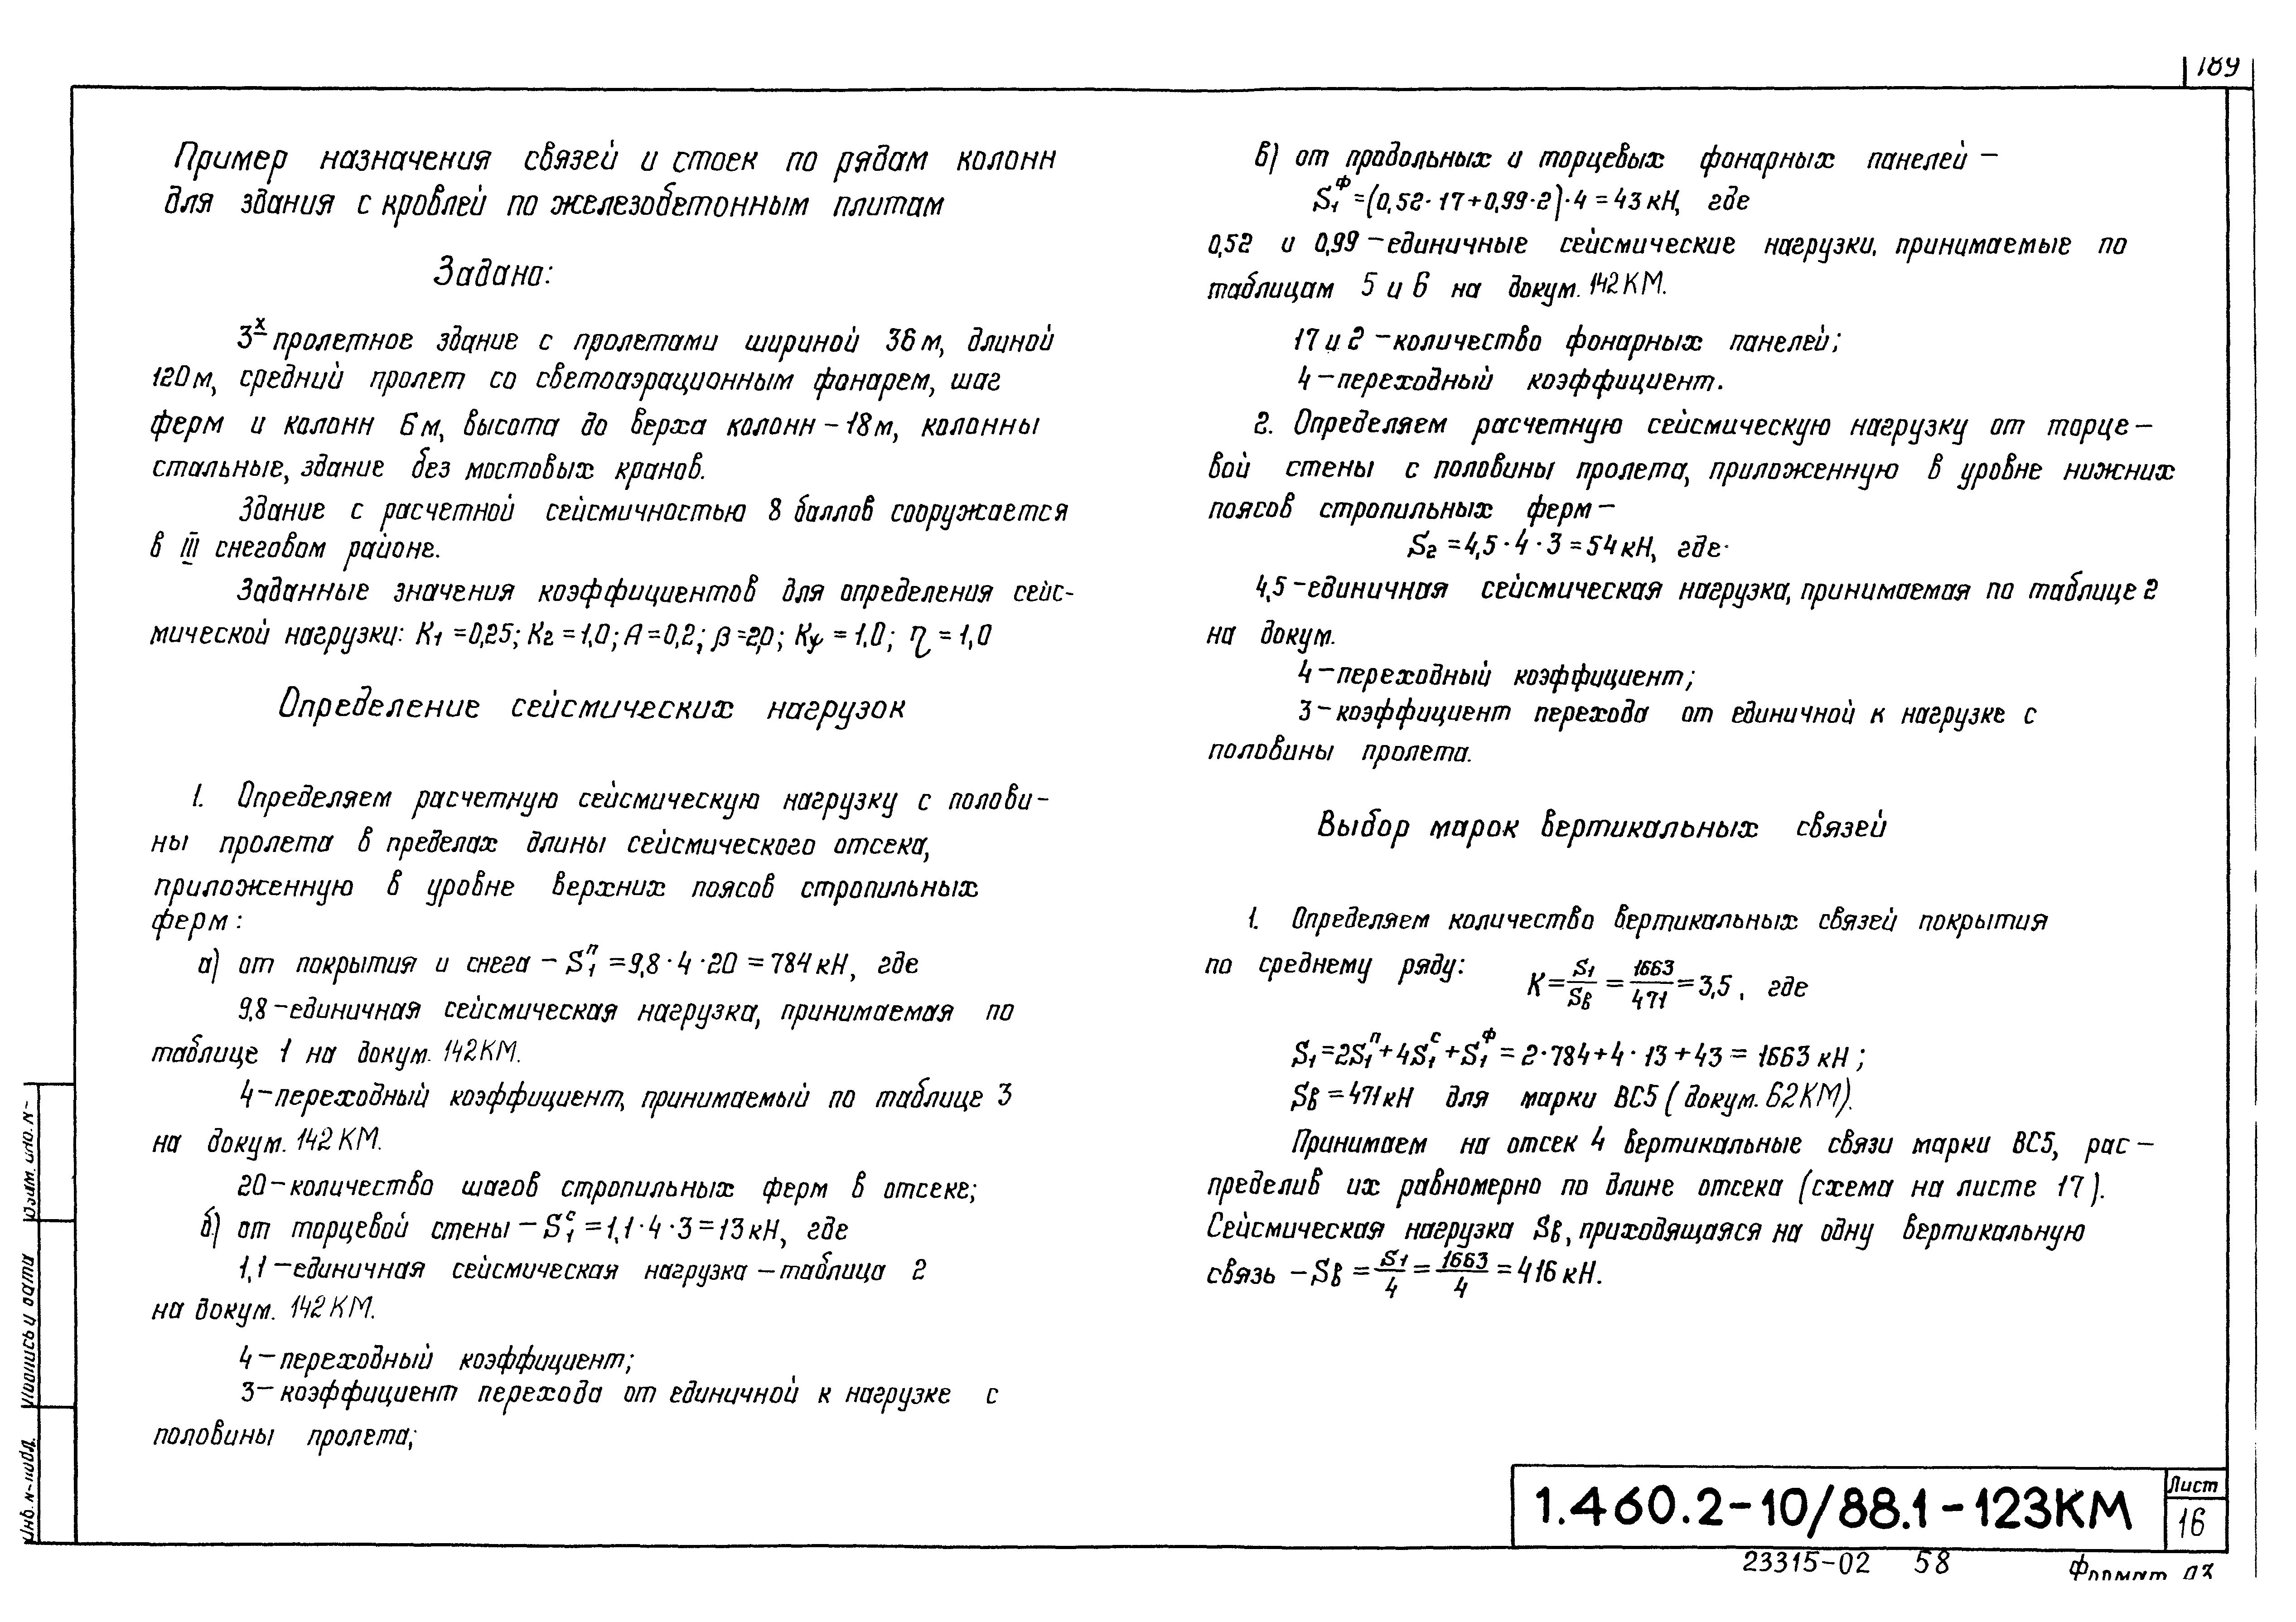 189
Пример назначения связей и стоек по рядам колонн
для здания с кровлей по железобетонным плитам
Задано:
3х пролетное здание с пролетами шириной 36 м, длиной
120 м, средний пролет со светоаэрационным фонарем, шаг
ферм и колонн 6 м, высота до верха колонн – 18 м, колонны
стальные, здание без мостовых кранов.
Здание с расчетной сейсмичностью 8 баллов сооружается
в III снеговом районе.
Заданные значения коэффициентов для определения сейс-
мической нагрузки: K1 = 0,25; K2 = 1,0; A = 0,2; β = 2,0; Kψ = 1,0; η = 1,0
Определение сейсмических нагрузок
1. Определяем расчетную сейсмическую нагрузку с полови-
ны пролета в пределах длины сейсмического отсека,
приложенную в уровне верхних поясов стропильных
ферм:
а) от покрытия и снега – S₁ⁿ = 9,8 · 4 · 20 = 784 кН, где
9,8 – единичная сейсмическая нагрузка, принимаемая по
таблице 1 на докум. 142КМ.
4 – переходный коэффициент, принимаемый по таблице 3
на докум. 142 КМ.
20 – количество шагов стропильных ферм в отсеке;
б) от торцевой стены – S₁ᶜ = 1,1 · 4 · 3 = 13 кН, где
1,1 – единичная сейсмическая нагрузка – таблица 2
на докум. 142 КМ.
4 – переходный коэффициент;
3 – коэффициент перехода от единичной к нагрузке с
половины пролета;
в) от продольных и торцевых фонарных панелей –
S₁ᶲ = (0,52 · 17 + 0,99 · 2) · 4 = 43 кН, где
0,52 и 0,99 – единичные сейсмические нагрузки, принимаемые по
таблицам 5 и 6 на докум. 142 КМ.
17 и 2 – количество фонарных панелей;
4 – переходный коэффициент.
2. Определяем расчетную сейсмическую нагрузку от торце-
вой стены с половины пролета, приложенную в уровне нижних
поясов стропильных ферм –
S2 = 4,5 · 4 · 3 = 54 кН, где
4,5 – единичная сейсмическая нагрузка, принимаемая по таблице 2
на докум.
4 – переходный коэффициент;
3 – коэффициент перехода от единичной к нагрузке с
половины пролета.
Выбор марок вертикальных связей
1. Определяем количество вертикальных связей покрытия
по среднему ряду: K = S1/Sв = 1663/471 = 3,5, где
S₁ = 2S₁ⁿ + 4S₁ᶜ + S₁ᶲ = 2 · 784 + 4 · 13 + 43 = 1663 кН;
Sв = 471 кН для марки ВС5 (докум. 62КМ).
Принимаем на отсек 4 вертикальные связи марки ВС5, рас-
пределив их равномерно по длине отсека (схема на листе 17).
Сейсмическая нагрузка Sв, приходящаяся на одну вертикальную
связь – Sв = S1/4 = 1663/4 = 416 кН.
Взам. инв. N-
Подпись и дата
Инв. N-подл.
1.460.2-10/88.1-123КМ
Лист
16
23315-02 58
Формат А3